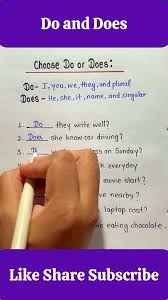 Do and Does
Choose Do or Does:
Do - I, you, we, they, and plural
Does - He, she, it, name, and singular
1. Do they write well?
2. Does she know car driving?
3. ss on Sunday?
k everyday
movie start?
ve nearby?
laptop cost?
e eating chocolate.
Like Share Subscribe